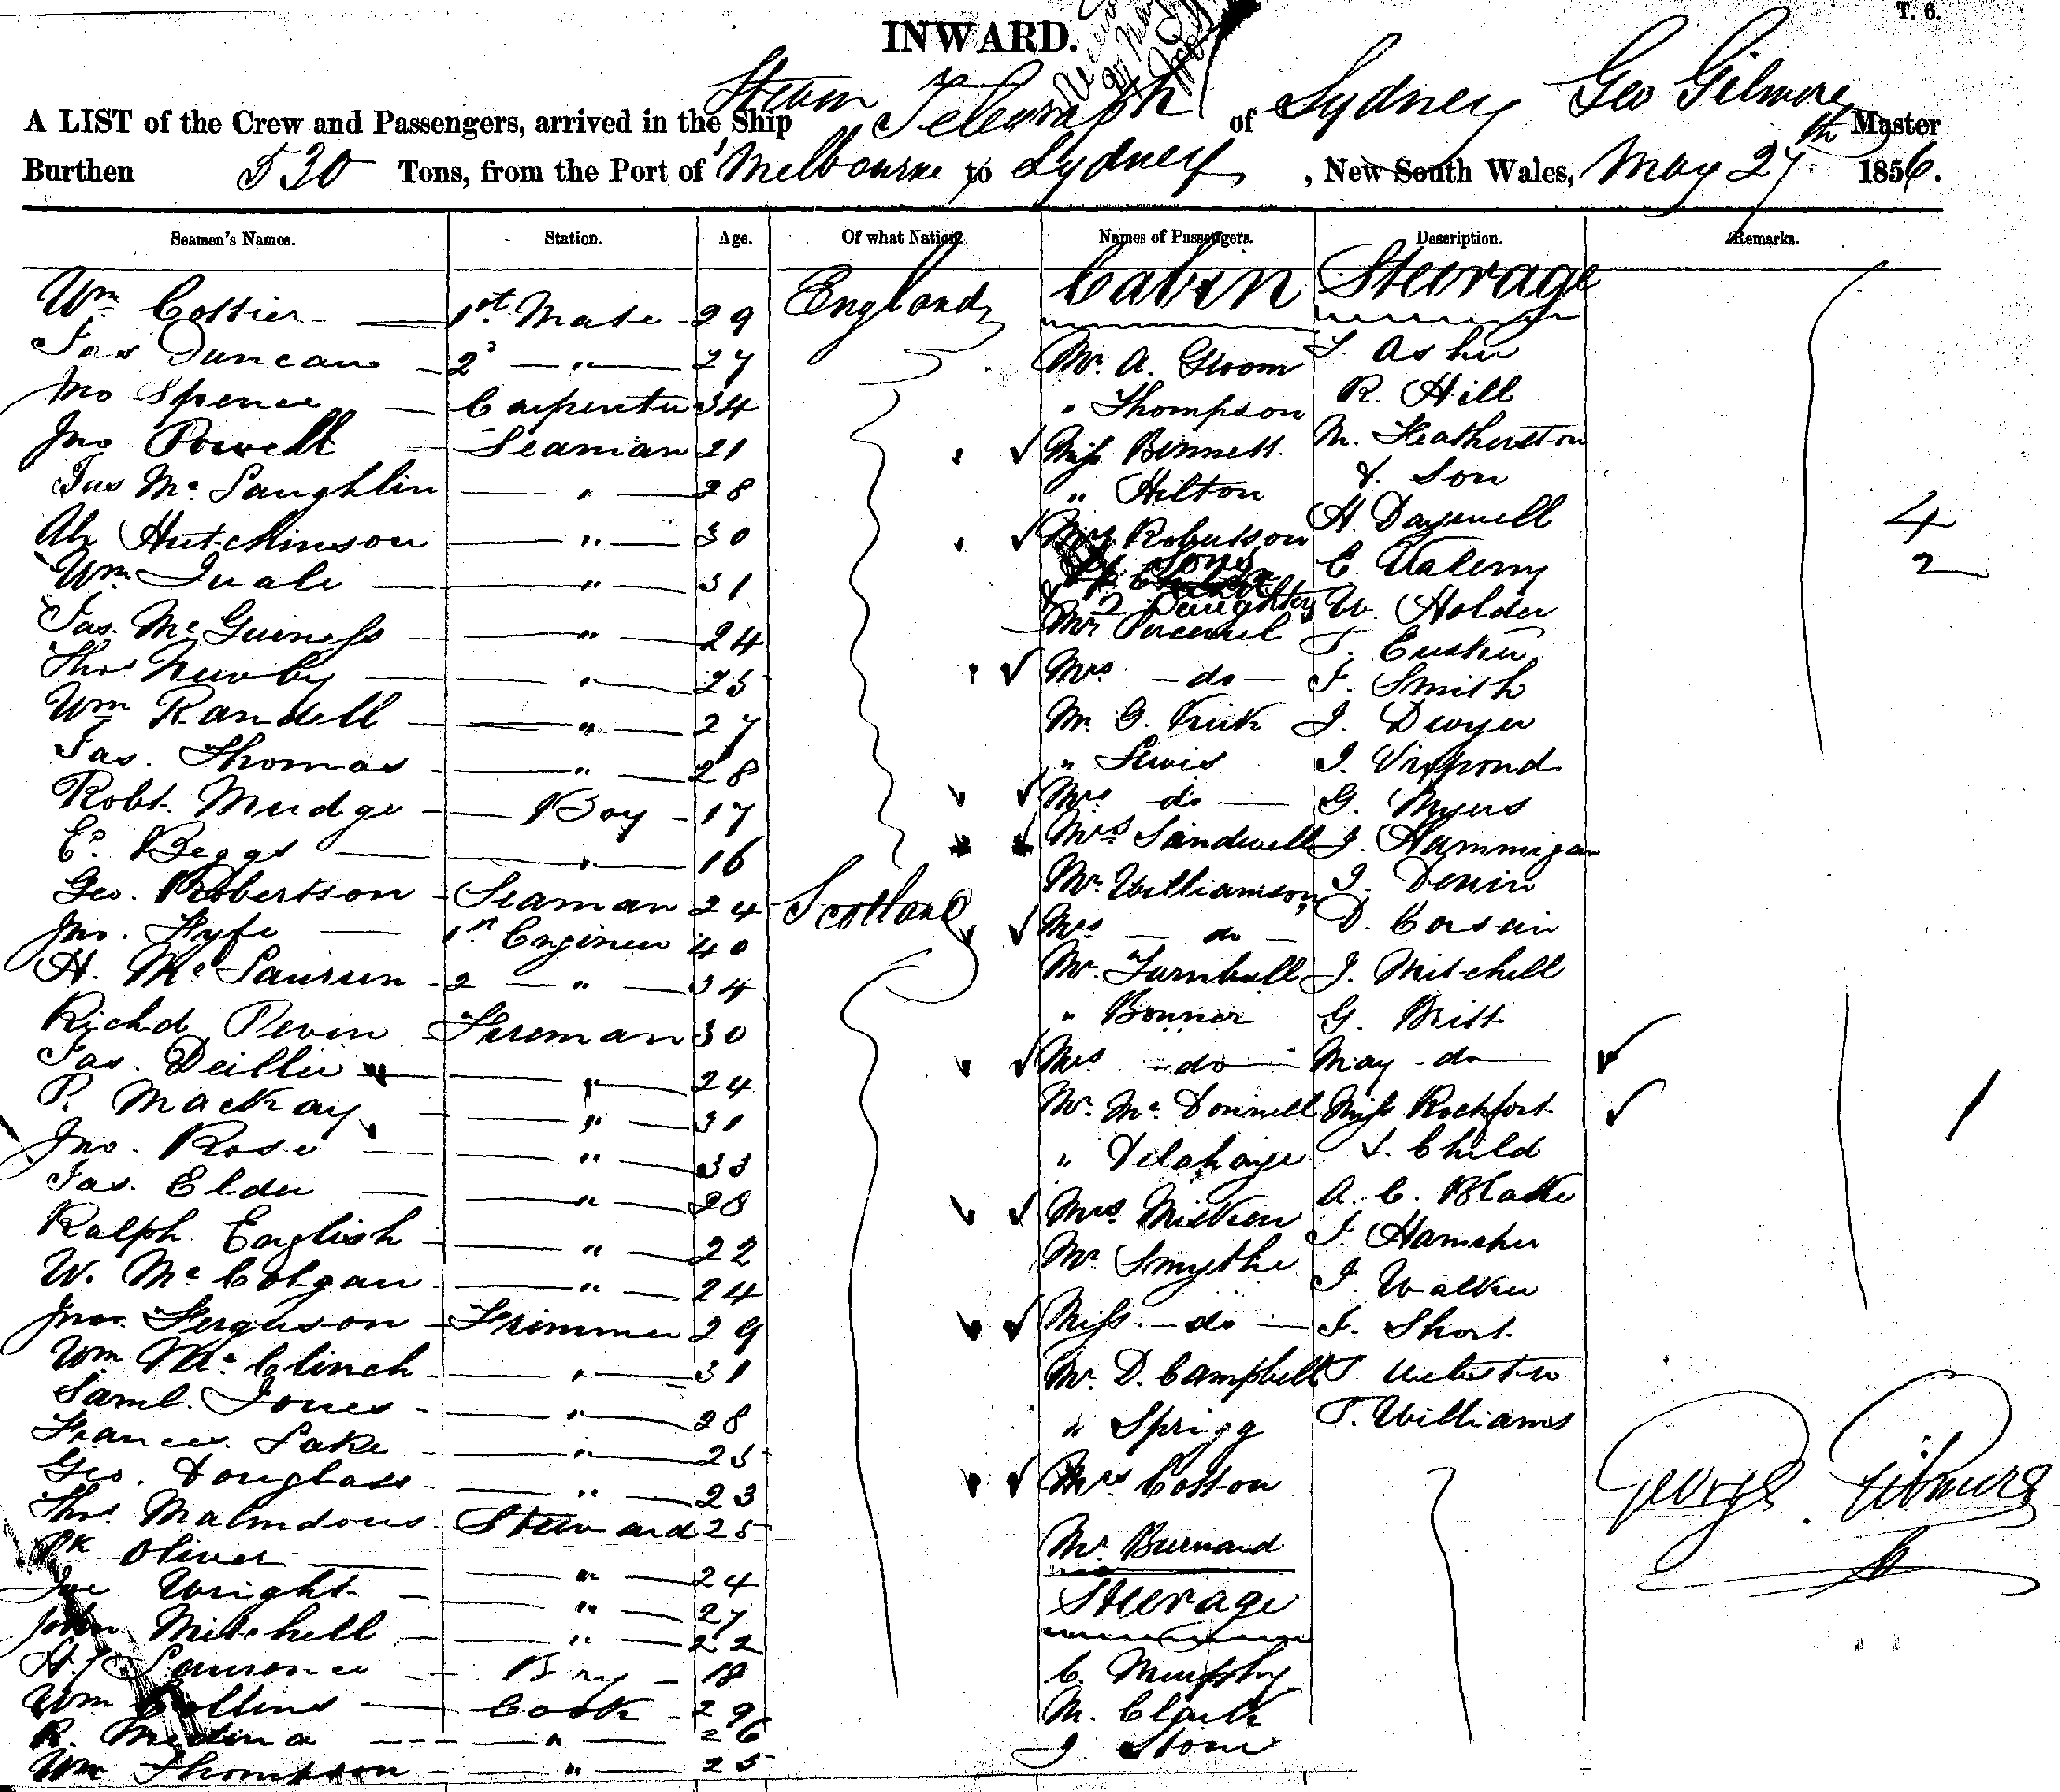 T. 6.
INWARD.
A LIST of the Crew and Passengers, arrived in the Ship Steam Telegraph of Sydney Geo Gilmore Master
Burthen 530 Tons, from the Port of Melbourne to Sydney, New South Wales, May 27th 1856.
Seamen's Names. Station. Age. Of what Nation. Names of Passengers. Description. Remarks.
Cabin Steerage
Wm Cottier 1st Mate 29 England
Jas Duncan 2d " 27 Mr. A. Groom T. Asher
Jno Spence Carpenter 34 " Thompson R. Hill
Jno Powell Seaman 21 Miss Bennett M. Featherston
Jas McLaughlin " 28 " Hilton & Son
Hutchinson " 30 Mrs Robertson H. Dayswell 4
Sons
Wm Quale " 31 & 2 Daughters C. 2
Jas. McGuiness " 24 Mr W. Holder
Thos Newby " 25 Mrs do J. Smith
Wm Randell " 27 Mr. G. Kirk J. Dwyer
Jas. Thomas " 28 " Lewis J. Vispond
Robt. Mudge Boy 17 Mrs do G. Myers
Ed. Beggs " 16 Mrs Sandwell J. Hannigan
Geo. Robertson Seaman 24 Scotland Mr. Williamson J. Devin
Jno. Fyfe 1st Engineer 40 Mrs do D. Corsain
H. McLauren 2 " 34 Mr. Turnbull J. Mitchell
Richd Pevin Fireman 30 " Bonner G. Britt
Jas. " 24 Mrs do May do
P. MacKay " 31 Mr. McDonnell Miss Rochfort 1
Jno. Rose " 33 " Delahaye & Child
Jas. Elder " 28 Mrs. Miskien A. C. Blake
Ralph English " 22 Mr Smythe J. Hamsher
W. McColgan " 24 J. Walker
Jno. Ferguson Trimmer 29 Miss do J. Short
Wm McClinch " 31 Mr. D. Campbell T. Webster
Saml. Jones " 28 " Sprigg T. Williams
Frances Lake " 25
Geo. Douglass " 23 Mrs Cotton George Gilmore
Thos Malmdous Steward 25
Pk Oliver " 24 Mr. Burnand
Jas Wright " 27 Steerage
John Mitchell " 22
H. Lawrence Boy 18 C. Murphy
Wm Collins Cook 29 M. Clark
R. Medina " 26 J Stone
Wm Thompson " 25